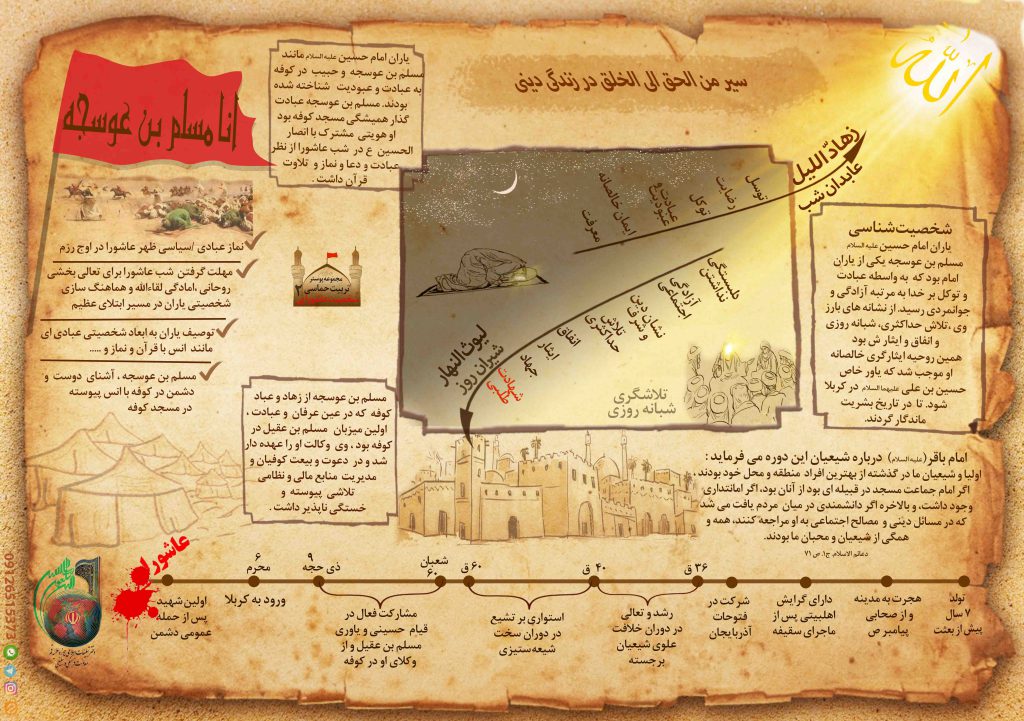 الله
سیر من الحق الی الخلق در زندگی دینی
انا مسلم بن عوسجه
یاران امام حسین علیه السلام مانند
مسلم بن عوسجه و حبیب در کوفه
به عبادت و عبودیت شناخته شده
بودند. مسلم بن عوسجه عبادت
گذار همیشگی مسجد کوفه بود
او هویتی مشترک با انصار
الحسین ع در شب عاشورا از نظر
عبادت و دعا و نماز و تلاوت
قرآن داشت.
زهادّ اللیل
عابدان شب
توسل
رضایت
توکل
عبادت و
عبودیت
ایمان خالصانه
معرفت
دلبستگی
نداشتن
آزادگی
اجتماعی
نشان دین
و شرف
تلاش
حداکثری
انفاق
ایثار
جهاد
شهادت
طلبی
لیوث النهار
شیران روز
تلاشگری
شبانه روزی
شخصیت‌شناسی
یاران امام حسین علیه السلام
مسلم بن عوسجه یکی از یاران
امام بود که به واسطه عبادت
و توکل بر خدا به مرتبه آزادگی و
جوانمردی رسید. از نشانه های بارز
وی، تلاش حداکثری، شبانه روزی
و انفاق و ایثار ش بود
همین روحیه ایثارگری خالصانه
او موجب شد که یاور خاص
حسین بن علی علیهما السلام در کربلا
شود. تا در تاریخ بشریت
ماندگار گردند.
نماز عبادی /سیاسی ظهر عاشورا در اوج رزم
مهلت گرفتن شب عاشورا برای تعالی بخشی
روحانی، آمادگی لقاءالله و هماهنگ سازی
شخصیتی یاران در مسیر ابتلای عظیم
توصیف یاران به ابعاد شخصیتی عبادی ای
مانند انس با قرآن و نماز و .....
مسلم بن عوسجه، آشنای دوست و
دشمن در کوفه با انس پیوسته
در مسجد کوفه
مجموعه پوستر
تربیت حماسی
۲
مسلم بن عوسجه از زهاد و عباد
کوفه که در عین عرفان و عبادت،
اولین میزبان مسلم بن عقیل در
کوفه بود، وی وکالت او را عهده دار
شد و در دعوت و بیعت کوفیان و
مدیریت منابع مالی و نظامی
تلاشی پیوسته و
خستگی ناپذیر داشت.
امام باقر (علیه السلام) درباره شیعیان این دوره می فرماید:
اولیا و شیعیان ما در گذشته از بهترین افراد منطقه و محل خود بودند،
اگر امام جماعت مسجد در قبیله ای بود از آنان بود، اگر امانتداری
وجود داشت، و بالاخره اگر دانشمندی در میان مردم یافت می شد
که در مسائل دینی و مصالح اجتماعی به او مراجعه کنند، همه و
همگی از شیعیان و محبان ما بودند.
دعائم الاسلام، ج۱، ص ۷۱
تولد
۷ سال
پیش از بعثت
هجرت به مدینه
و از صحابی
پیامبر ص
دارای گرایش
اهلبیتی پس از
ماجرای سقیفه
شرکت در
فتوحات
آذربایجان
۳۶ ق
۴۰ ق
رشد و تعالی
در دوران خلافت
علوی شیعیان
برجسته
۶۰ ق
استواری بر تشیع
در دوران سخت
شیعه‌ستیزی
شعبان
۶۰
۹
ذی حجه
مشارکت فعال در
قیام حسینی و یاوری
مسلم بن عقیل و از
وکلای او در کوفه
۶
محرم
ورود به کربلا
عاشورا
اولین شهید
پس از حمله
عمومی دشمن
09126515373